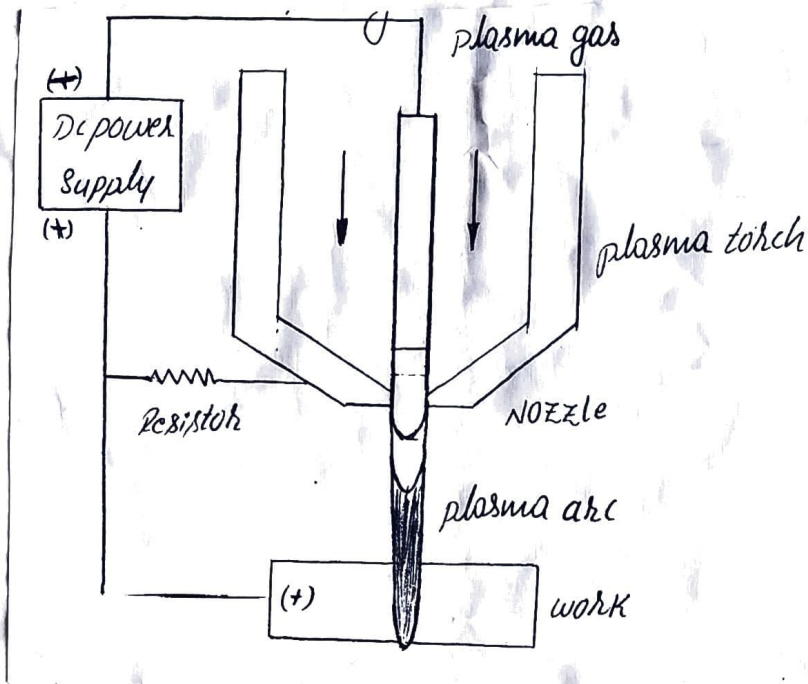 plasma gas
(+)
Dc power
Supply
(+)
plasma torch
Resistor
NOZZLE
plasma arc
(+)
work